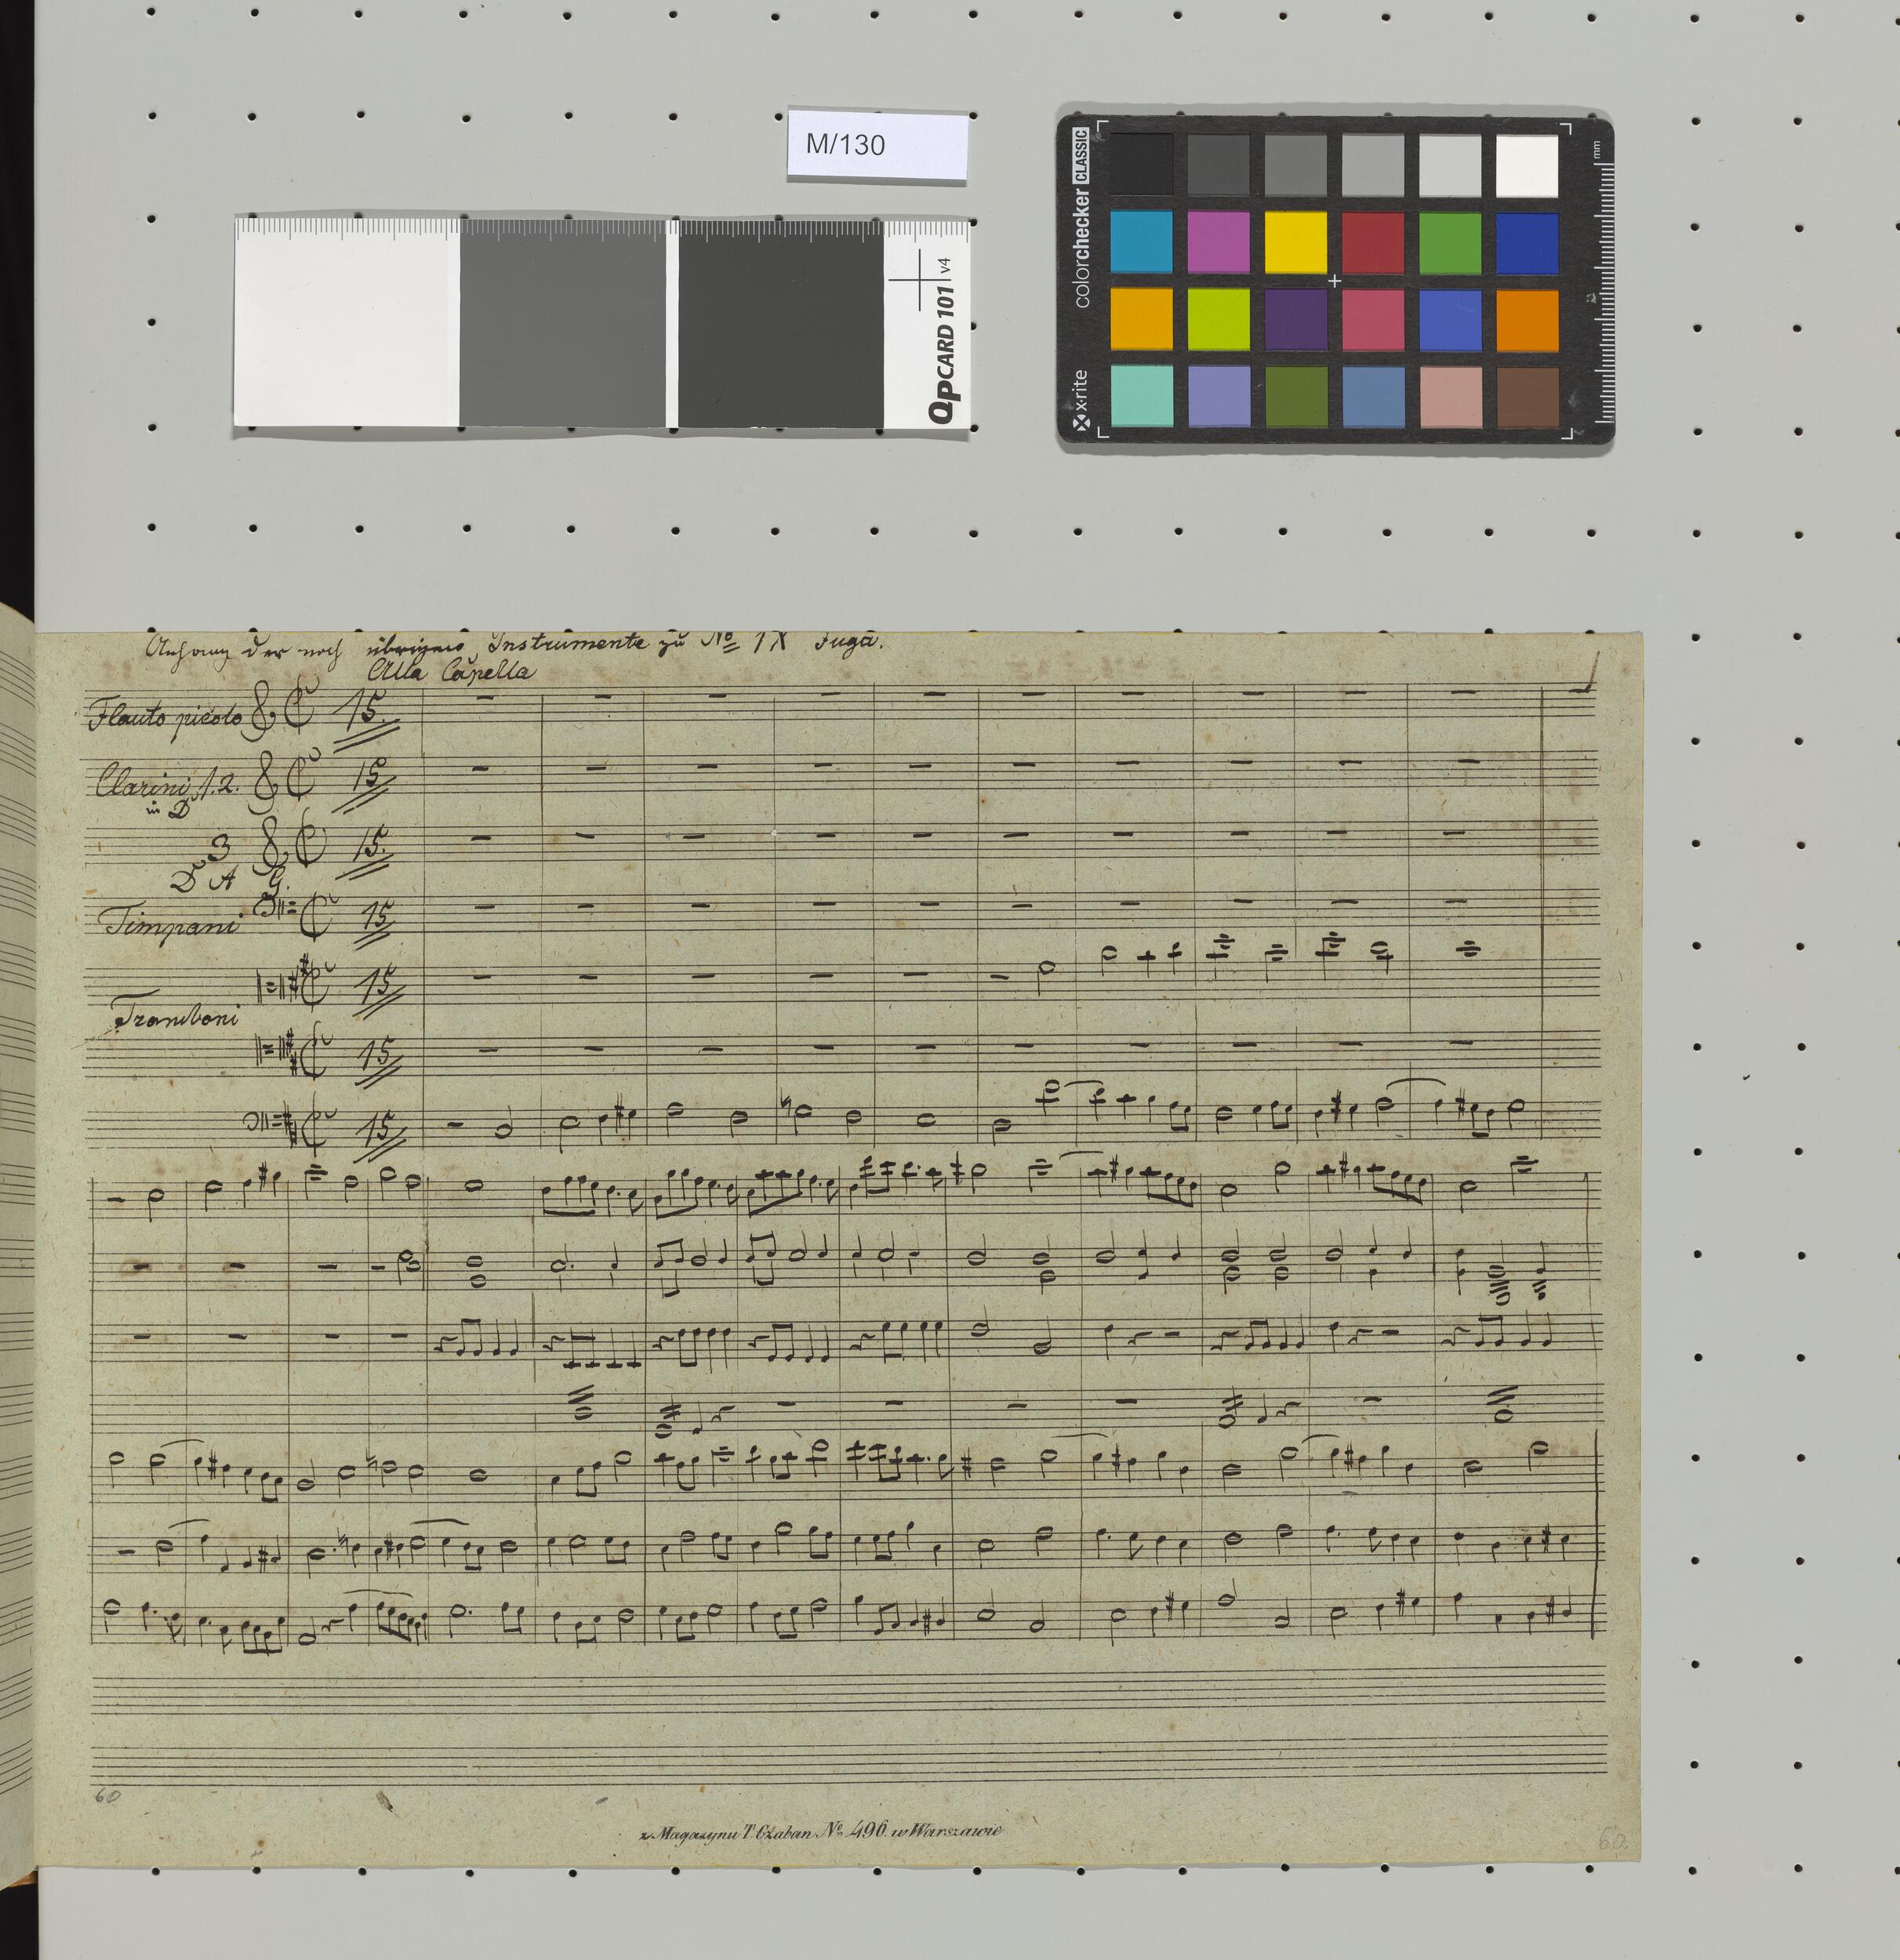 M/130
QPCARD 101 v4
colorchecker CLASSIC
x-rite
mm
Anhang der noch übrigens Instrumente zu No IX Fuga.
Alla Capella
Flauto picolo 15.
Clarini 1.2. 15
in D
3 15.
D A G.
Timpani 15
15
Tromboni
15
15
60
z Magazynu T. Czaban No. 496. w Warszawie
60